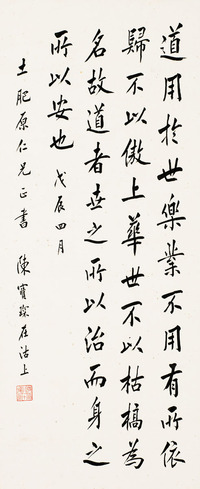 道用於世樂業不用有所依
歸不以傲上華世不以枯槁為
名故道者世之所以治而身之
所以安也 戊辰四月
土肥原仁兄正書 陳寶琛在沽上